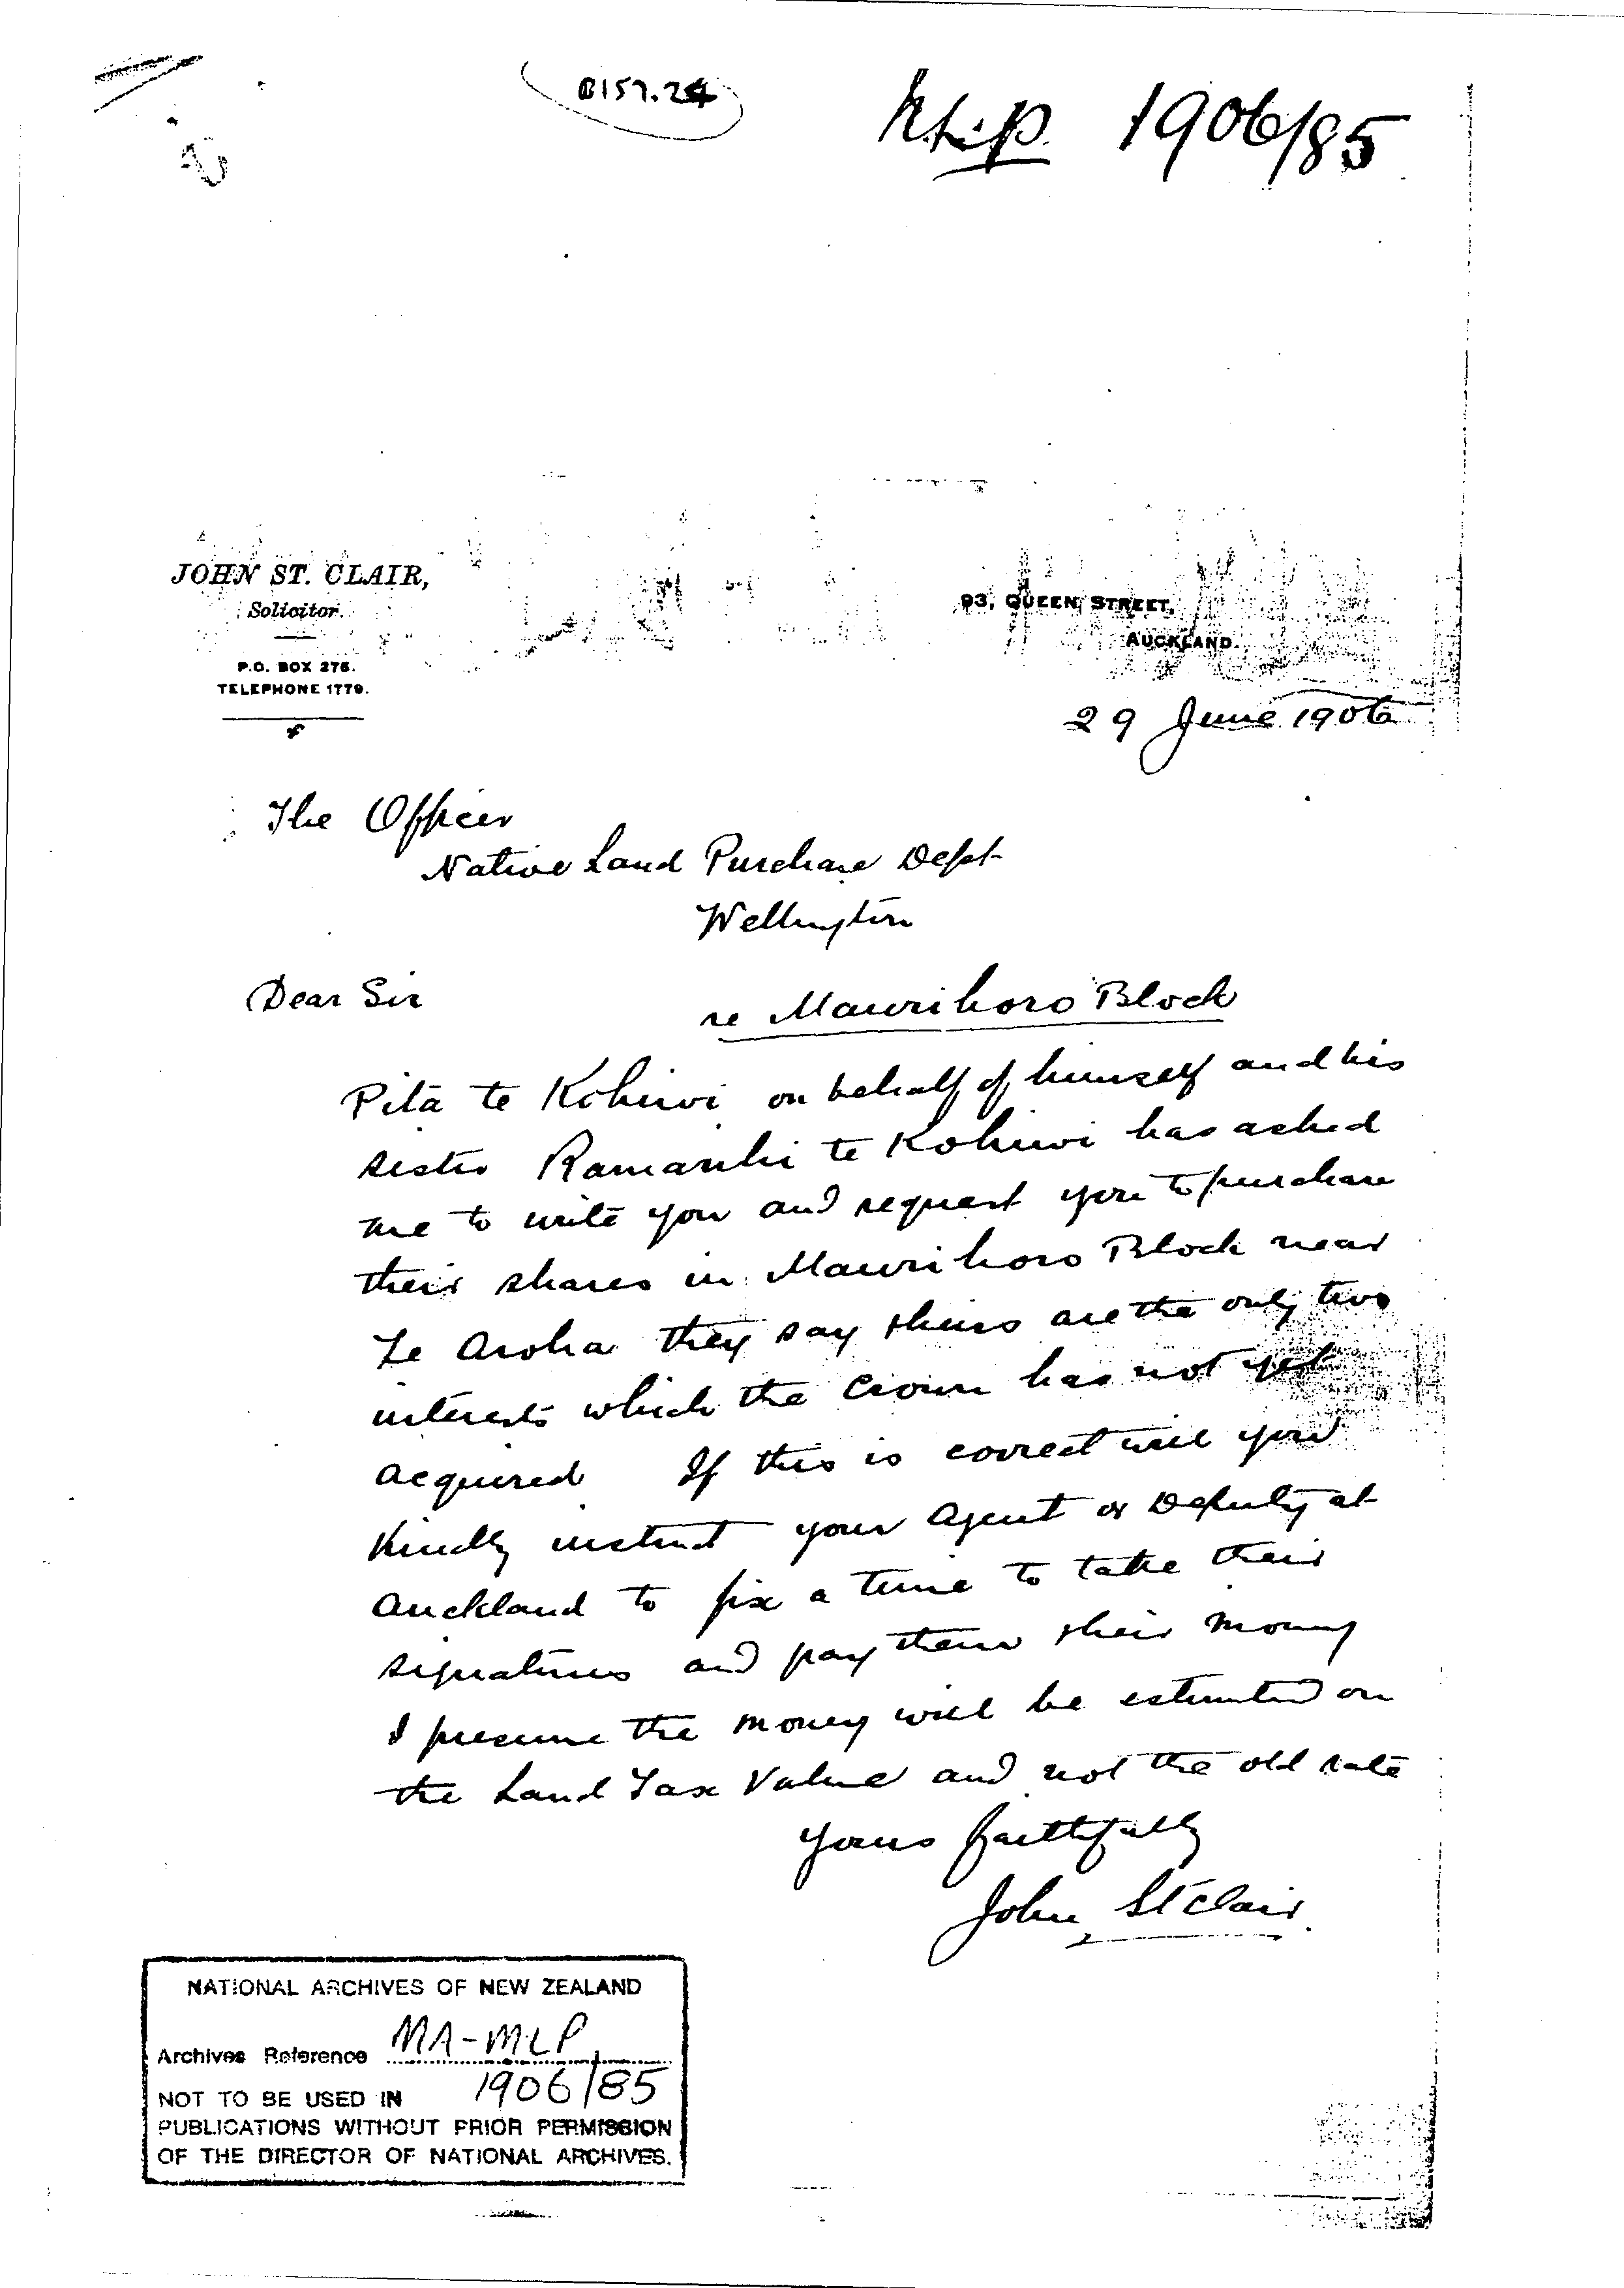 B157.24
N.L.P. 1906/85
JOHN ST. CLAIR,
Solicitor.
P.O. BOX 275.
TELEPHONE 1779.
93, QUEEN STREET,
AUCKLAND.
29 June 1906
The Officer
Native Land Purchase Dept
Wellington
Dear Sir
re Maurihoro Block
Pita te Kohiwi on behalf of himself and his
sister te Kohiwi has asked
me to write you and request you to purchase
their shares in Maurihoro Block near
Te Aroha they say theirs are the only two
interests which the Crown has not yet
acquired If this is correct will you
kindly instruct your Agent or Deputy at
Auckland to fix a time to take their
signatures and pay them their money
I presume the money will be estimated on
the Land Tax Value and not the old rate
Yours faithfully
John St Clair
NATIONAL ARCHIVES OF NEW ZEALAND
Archives Reference MA-MLP
1906/85
NOT TO BE USED IN
PUBLICATIONS WITHOUT PRIOR PERMISSION
OF THE DIRECTOR OF NATIONAL ARCHIVES.